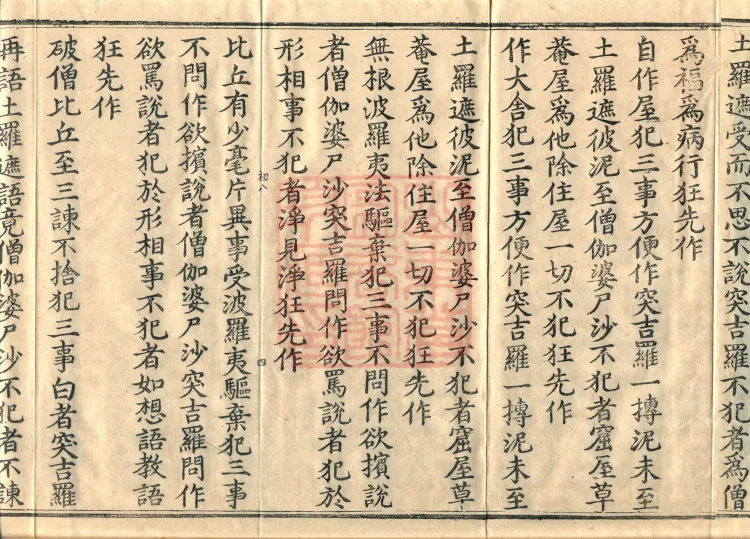 土羅遮受而不思不說突吉羅不犯者爲僧
爲福爲病行狂先作
自作屋犯三事方便作突吉羅一摶泥未至
土羅遮彼泥至僧伽婆尸沙不犯者窟屋草
菴屋爲他除住屋一切不犯狂先作
作大舍犯三事方便作突吉羅一摶泥未至
土羅遮彼泥至僧伽婆尸沙不犯者窟屋草
菴屋爲他除住屋一切不犯狂先作
無根波羅夷法驅棄犯三事不問作欲擯說
者僧伽婆尸沙突吉羅問作欲罵說者犯於
形相事不犯者淨見淨狂先作
初八
四
比丘有少毫片異事受波羅夷驅棄犯三事
不問作欲擯說者僧伽婆尸沙突吉羅問作
欲罵說者犯於形相事不犯者如想語教語
狂先作
破僧比丘至三諫不捨犯三事白者突吉羅
再語土羅遮語竟僧伽婆尸沙不犯者不諫